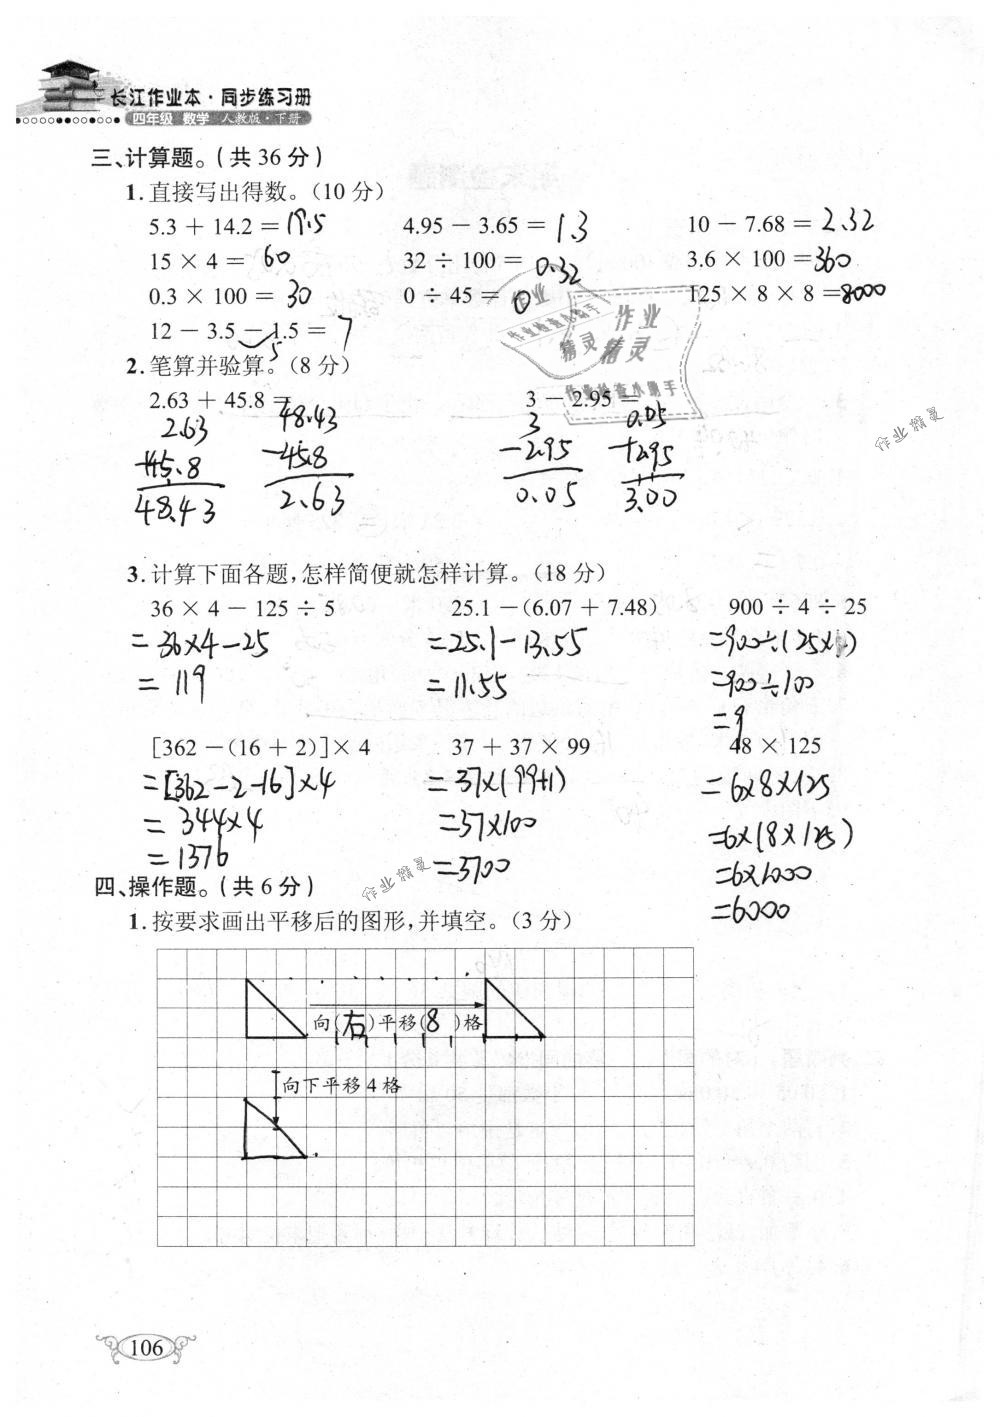 长江作业本·同步练习册
四年级 数学 人教版·下册
三、计算题。（共 36 分）
1. 直接写出得数。（10 分）
5.3 + 14.2 = 19.5 4.95 − 3.65 = 1.3 10 − 7.68 = 2.32
15 × 4 = 60 32 ÷ 100 = 0.32 3.6 × 100 = 360
0.3 × 100 = 30 0 ÷ 45 = 0 125 × 8 × 8 = 8000
12 − 3.5 − 1.5 = 7
5
2. 笔算并验算。（8 分）
2.63 + 45.8 = 3 − 2.95 =
2.63 48.43 3 0.05
+45.8 −45.8 −2.95 +2.95
48.43 2.63 0.05 3.00
作业
作业检查小助手
精灵
作业
精灵
作业检查小助手
作业精灵
3. 计算下面各题，怎样简便就怎样计算。（18 分）
36 × 4 − 125 ÷ 5 25.1 −（6.07 + 7.48） 900 ÷ 4 ÷ 25
= 36×4−25 =25.1−13.55 =900÷(25×4)
= 119 = 11.55 =900÷100
=9
[362 −（16 + 2）] × 4 37 + 37 × 99 48 × 125
=[362−2−16]×4 = 37×(99+1) = 6×8×125
= 344×4 =37×100 =6×(8×125)
= 1376 =3700 =6×1000
=6000
作业精灵
四、操作题。（共 6 分）
1. 按要求画出平移后的图形，并填空。（3 分）
向（右）平移（8）格
向下平移 4 格
106